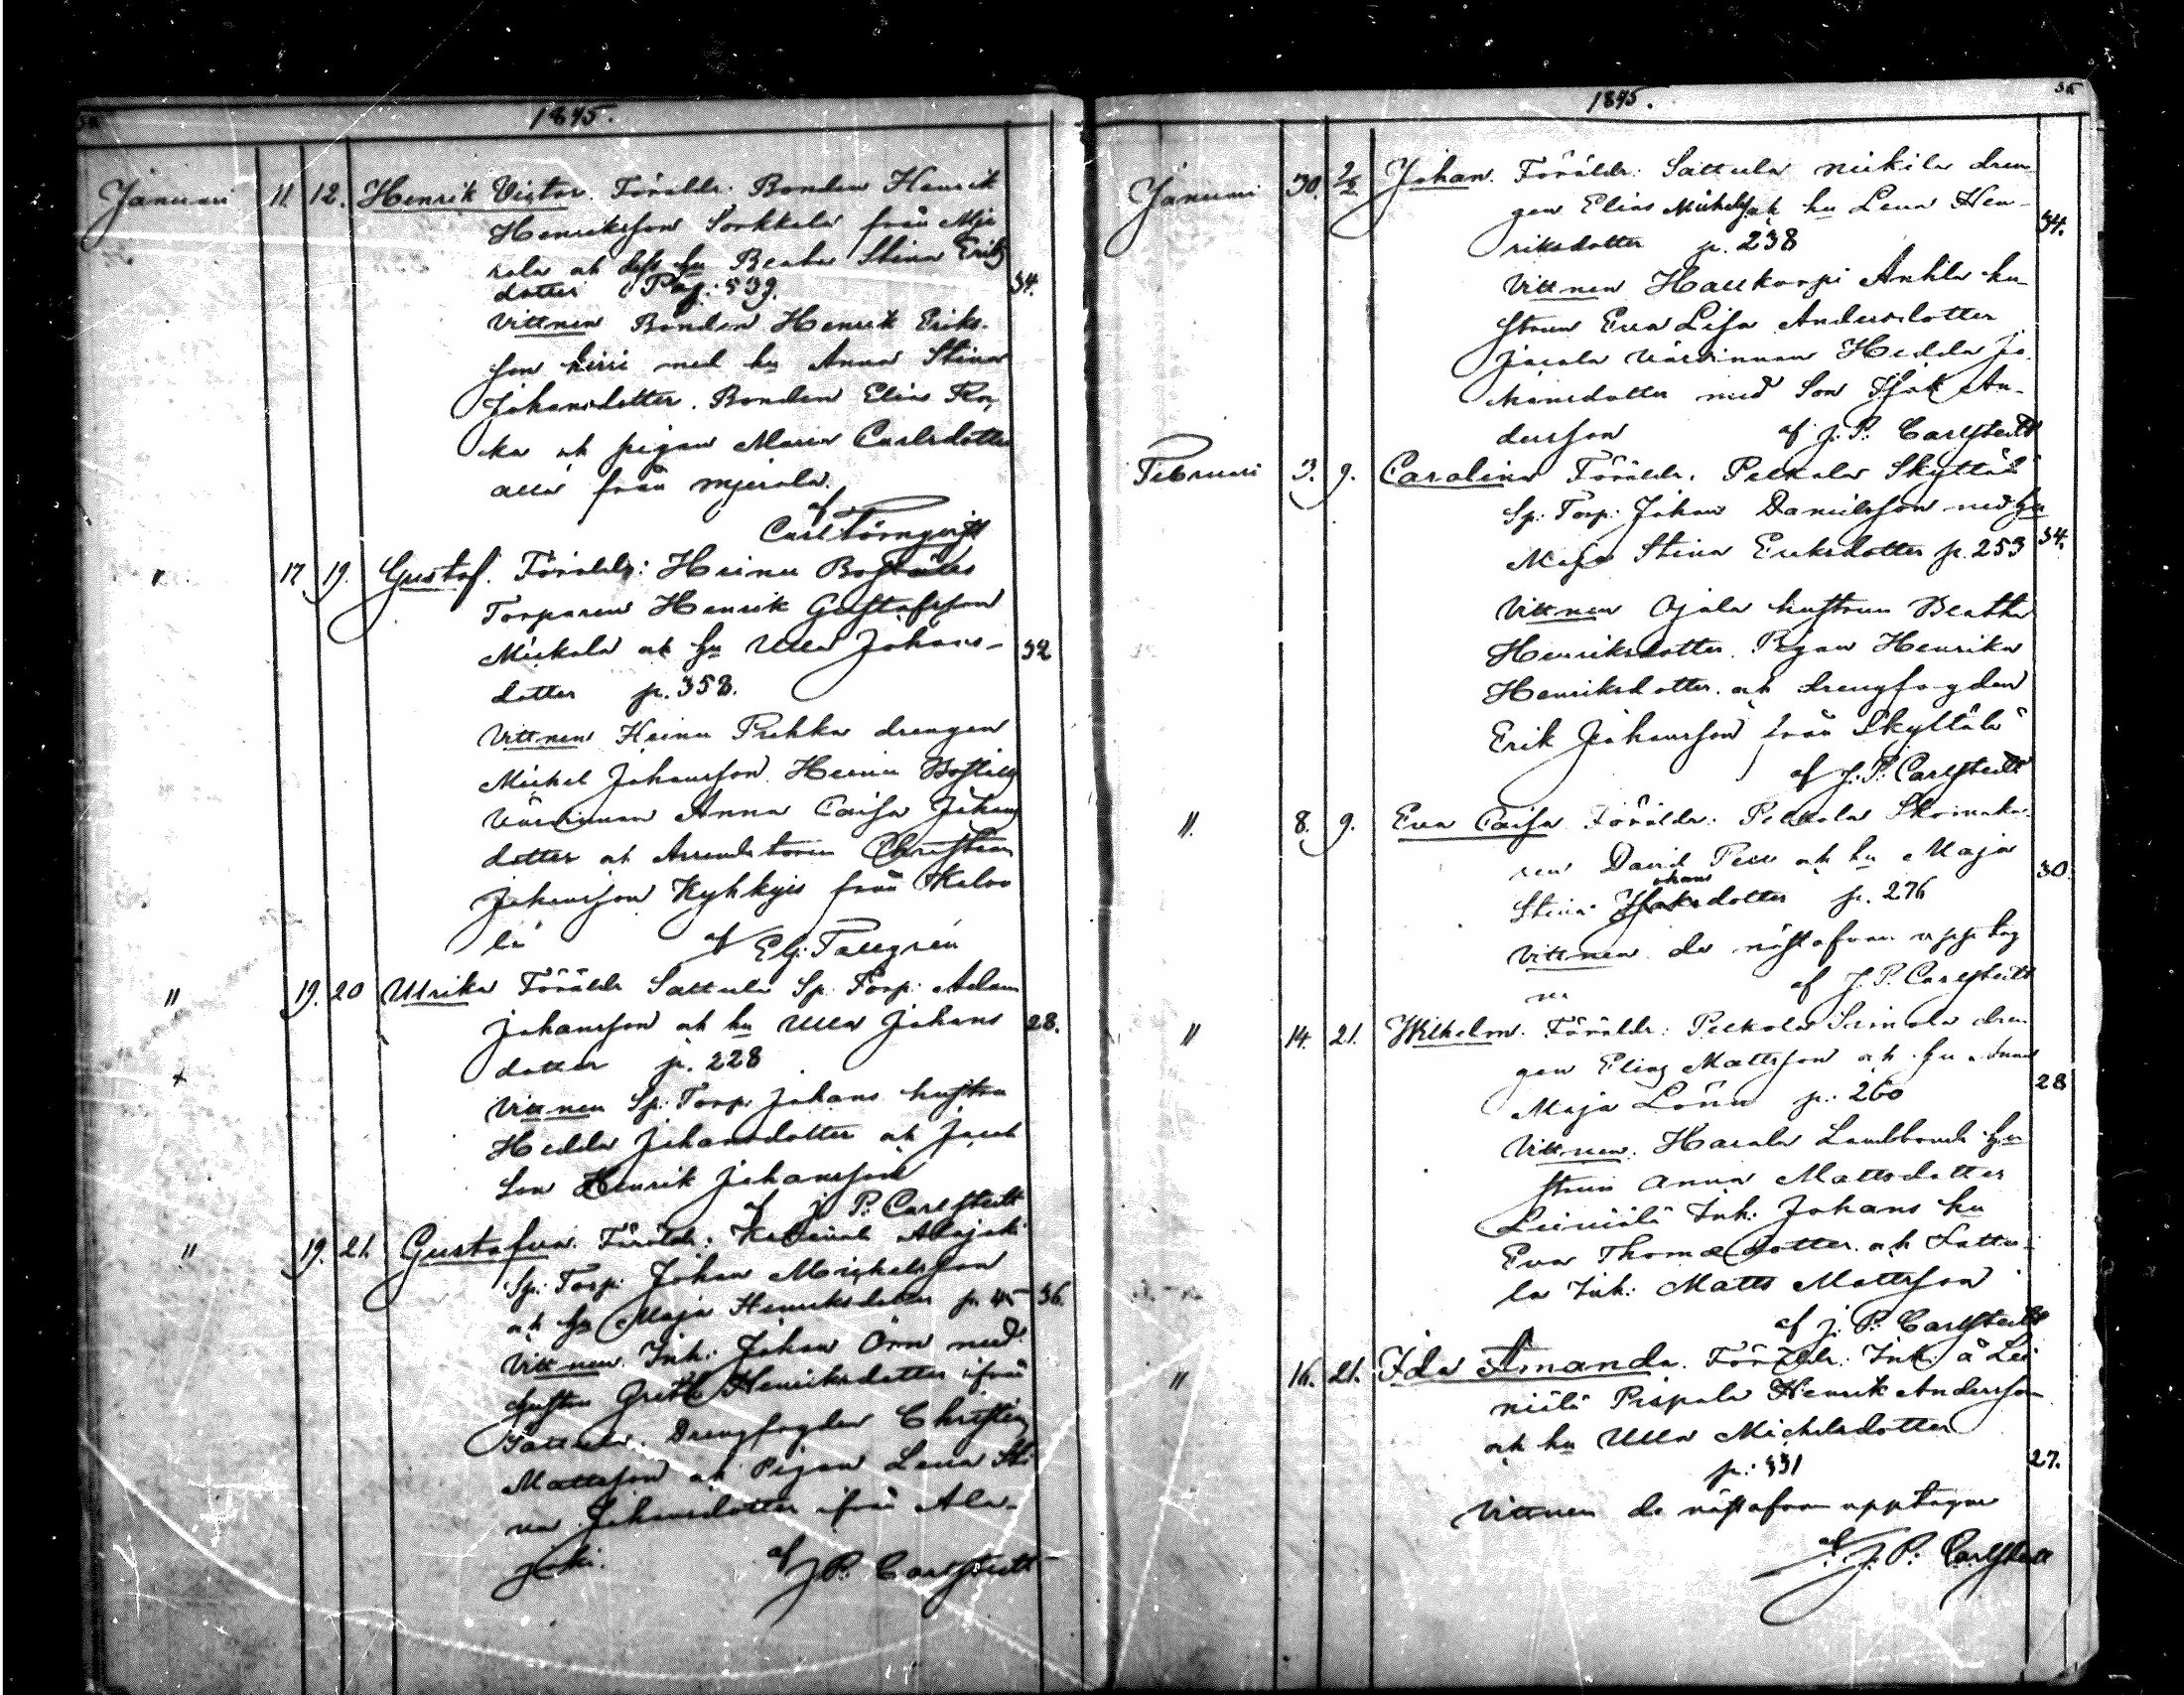 1845.
Januari 11. 12. Henrik Victor. Föräldr: Bonden Henrik
Henriksson Sorkkala från Mje
rola och dess hu Beata Stina Eriks
dotter Pag: 539. 34.
Vittnen Bonden Henrik Eriks-
son Kirri med hu Anna Stina
Johansdotter. Bonden Elias
ka och pigan Maria Carlsdotter
alla från Mjerola.
af
Carl Törnqvist
" 17. 19. Gustaf. Föräldr: Heinu
Torparen Henrik Gustafsson
Mickola och hu Ulla Johans- 32
dotter p. 358.
Vittnen Heinu Prihka drengen
Michel Johansson. Heinu
Värdinnan Anna Caisa Johans
dotter och Arrendatoren Christian
Johansson Kyhkyis från Kaloo
lä af Elj. Tallgrén
" 19. 20 Ulrika Föräldr Sattula Sp. Torp: Adam
Johansson och hu Ulla Johans 28.
dotter p. 228
Vittnen Sp: Torp: Johans hustru
Hedda Johansdotter och Jacob
Son Henrik Johansson
af J. P: Carlstedt
" 19. 21. Gustafva. Föräldr: Alajoki
Sp: Torp: Johan Michelsson
och hu Maja Henriksdotter p. 45 36.
Vittnen. Inh: Johan Örn med
hustru Greta Henriksdotter ifrån
Sattula. Drengfogden Christian
Mattsson och Pigan Lena Sti
na Johansdotter ifrån Ala-
joki. af J. P: Carlstedt
1845. 35
Januari 30. 2/2 Johan. Föräldr: Sattula Mickila dren
gen Elias Michelss och hu Lena Hen- 34.
riksdotter p. 238
Vittnen Haukorpi Anhila hu
strun Eva Lisa Andersdotter
Jacola Värdinnan Hedda Jo
hansdotter med Son Isak An-
dersson af J. P: Carlstedt
Februari 3. 9. Carolina Föräldr. Pelkola Skyttälä
Sp: Torp: Johan Danielsson med hu
Maja Stina Eriksdotter p. 253 34.
Vittnen Ojala hustrun Beatha
Henriksdotter. Pigan Henrika
Henriksdotter. och drengfogden
Erik Johansson från Skyttälä
af J. P: Carlstedt
". 8. 9. Eva Caisa Föräldr: Pelkola Skomaka-
ren David och hu Maja 30.
ohans
Stina dotter p. 276
Vittnen de nästofvan upptag
na af J. P. Carlstedt
" 14. 21. Wilhelm. Föräldr: Pelkola dren
gen Elias Mattsson och hu Anna 28
Maja Lönn p. 260
Vittnen. Harala Landbonde hu
strun Anna Mattsdotter
Leiniälä Inh: Johans hu
Eva Thomædotter. och Sattu-
la Inh: Matts Mattsson
af J. P: Carlstedt
" 16. 21. Ida Amanda. Föräldr: Inh: å Lei
niälä Pispala Henrik Andersson
och hu Ulla Michelsdotter
p: 331 27.
Vittnen de nästofvan upptagne
af J. P: Carlstedt